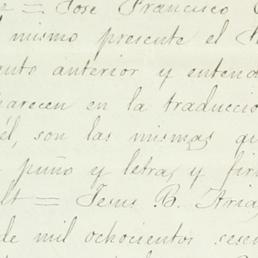 = José Francisco
mismo presente el
nto anterior y entend
parecen en la traducció
él, son las mismas qu
puño y letras y fir
lt = Jesus B. Aria
de mil ochocientos sese